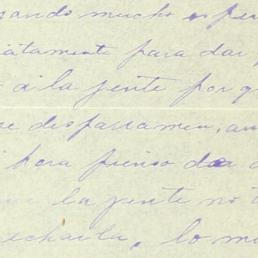 sando mucho esper
iátamente para dar
a la jente por q
se desparramen, an
hora pienso de a
la jente no
echarla, lo m